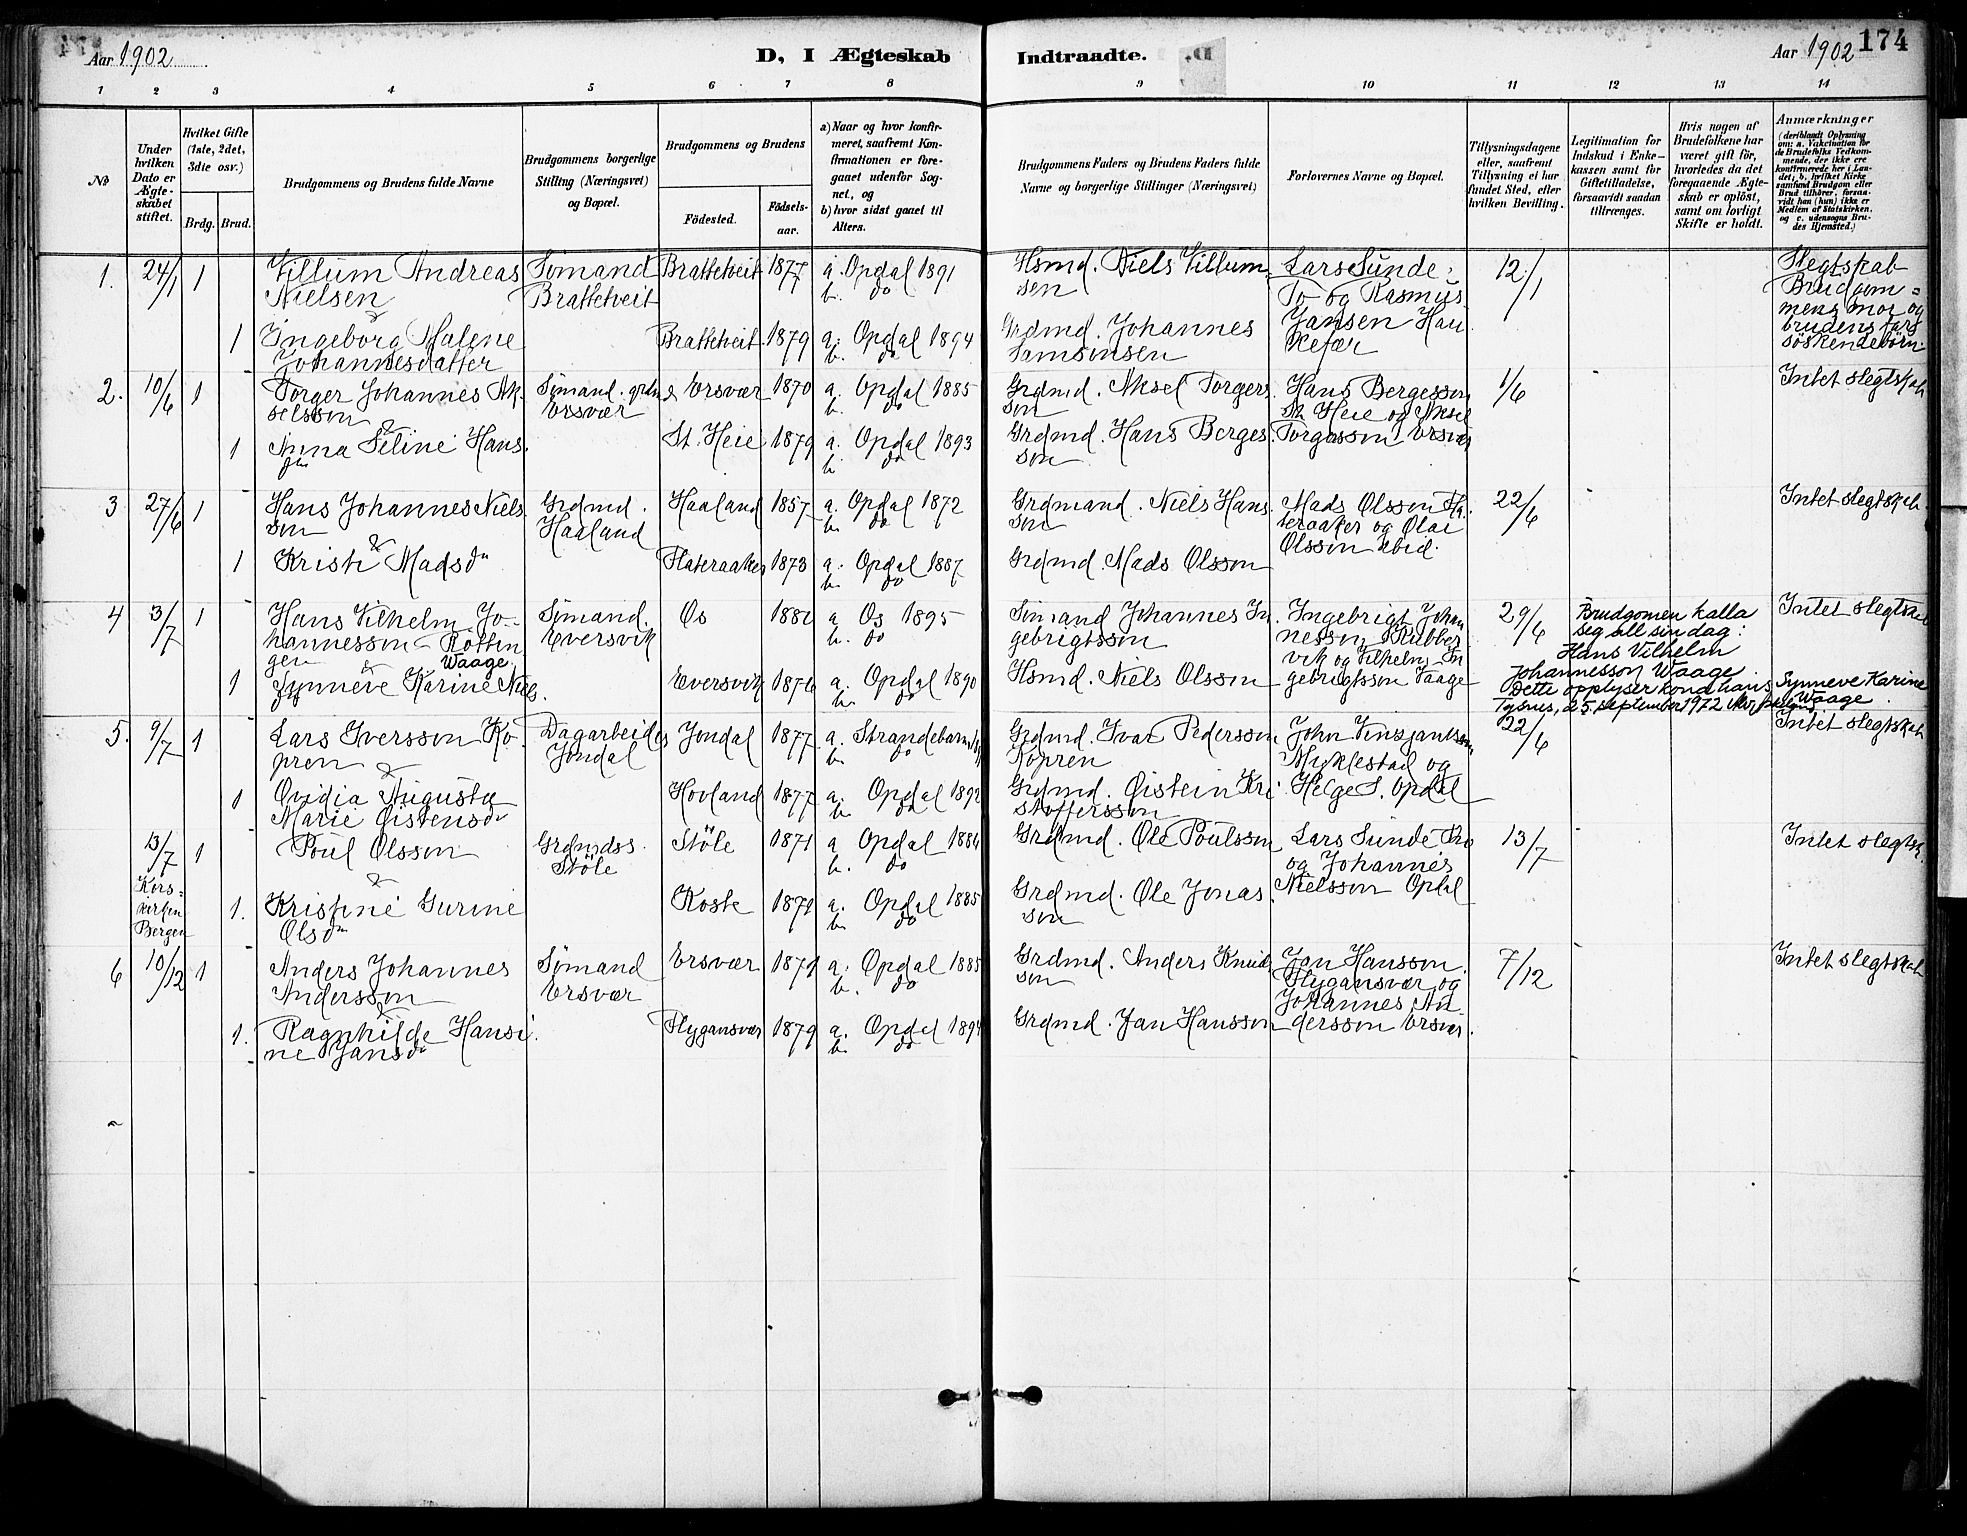 Aar 1902
D, I Ægteskab Indtraadte.
Aar 1902
174
1 2 3 4 5 6 7 8 9 10 11 12 13 14
No
Under hvilken Dato er Ægte-skabet stiftet.
Hvilket Gifte (1ste, 2det, 3die osv.)
Brdg. Brud.
Brudgommens og Brudens fulde Navne
Brudgommens borgerlige Stilling (Næringsvei) og Bopæl.
Brudgommens og Brudens
Födested.
Födsels-aar.
a) Naar og hvor konfir-meret, saafremt Kon-firmationen er fore-gaaet udenfor Sog-net, og
b) hvor sidst gaaet til Alters.
Brudgommens Faders og Brudens Faders fulde Navne og borgerlige Stillinger (Næringsvei)
Forlovernes Navne og Bopæl.
Tillysningsdagene eller, saafremt Tillysning ei har fundet Sted, efter hvilken Bevilling.
Legitimation for Indskud i Enke-kassen samt for Giftetilladelse, forsaavidt saadan tiltrænges.
Hvis nogen af Brudefolkene har været gift för, hvorledes da det foregaaende Ægte-skab er oplöst, samt om lovligt Skifte er holdt.
Anmærkninger
(deriblandt Oplysning om: a. Vakcination for de Brudefolks Vedkom-mende, der ikke ere konfirmerede her i Lan-det; b. hvilket Kirke samfund Brudgom eller Brud tilhörer, forsaa-vidt han (hun) ikke er Medlem af Statskirken, og c. udensogns Bru-des Hjemsted.)
1. 24/1 1 Villum Andreas Nielsen Sömand Brattetveit Brattetveit 1877 a. Opdal 1891 b. do Hsmd. Niels Villumsen Lars Sunde To og Rasmus Jansen Haukefær 12/1 Slegtskab Brudgommens mor og brudens fars söskendebörn
&
1 Ingeborg Malene Johannesdatter Brattetveit 1879 a. Opdal 1894 b. do Grdmd. Johannes Samsonsen
2. 10/6 1 Torger Johannes Akselsson Sömand Ersvær Ersvær 1870 a. Opdal 1885 b. do Grdmd. Aksel Torgersson Hans Bergesson St. Heie og Aksel Torgersson Ersvær 1/6 Intet slegtskab
&
1 Anna Seline Hansdn St. Heie 1879 a. Opdal 1893 b. do Grdmd. Hans Bergesson
3 27/6 1 Hans Johannes Nielsson Grdmd. Haaland Haaland 1857 a. Opdal 1872 b. do Grdmand. Niels Hansson Mads Olsson Flateraaker og Olai Olsson ibid. 22/6 Intet slegtskab
&
1 Kristi Madsdn Flateraaker 1873 a. Opdal 1887 b. do Grdmd. Mads Olsson
4 3/7 1 Hans Vilhelm Johannesson Röttingen Waage Sömand. Eversvik Os a Os 1895 b. do Sömand Johannes Ingebrigtsson Ingebrigt Johannesson Skubbevik og Vilhelm Ingebrigtsson Vaage 29/6 Brudgomen kalla seg all sin dag: Hans Vilhelm Johannesson Waage Dette opplyser kona hans Synneve Karine Waage Tysnes, d 5. september 1972 Intet slegtskab
&
1 Synneve Karine Nielsdn Eversvik 1876 a. Opdal 1890 b. do Hsmd. Niels Olsson
5. 9/7 1 Lars Iversson Kopren Dagarbeider Jondal Jondal 1877 a. Strandebarm b. do Grdmd. Ivar Pedersson Kopren John Vinsjansson Myklestad og Helge S. Opdal 22/6 Intet slegtskab
&
1 Ovidia Augusta Marie Øistensdr Hovland 1877 a. Opdal 1892 b. do Grdmd. Øistein Kristoffersson
13/7 Korskirken Bergen 1 Poul Olsson Grdmdss. Stöle Stöle 1871 a Opdal 1886 b. do Grdmd. Ole Poulsson Lars Sunde Tro og Johannes Nielsson Opdal 13/7 Intet slegtsk.
&
1. Kristine Gurine Olsdn Koste 1871 a. Opdal 1885 b. do Grdmd. Ole Jonasson
6 10/12 1 Anders Johannes Andersson Sömand Ersvær Ersvær 1871 a. Opdal 1885 b. do Grdmd. Anders Knudsson Jan Hansson Flygansvær og Johannes Andersson Ersvær. 7/12 Intet slegtskab
&
1. Ragnhilde Hansine Jansdr Flygansvær 1879 a. Opdal 1894 b. do Grdmd. Jan Hansson